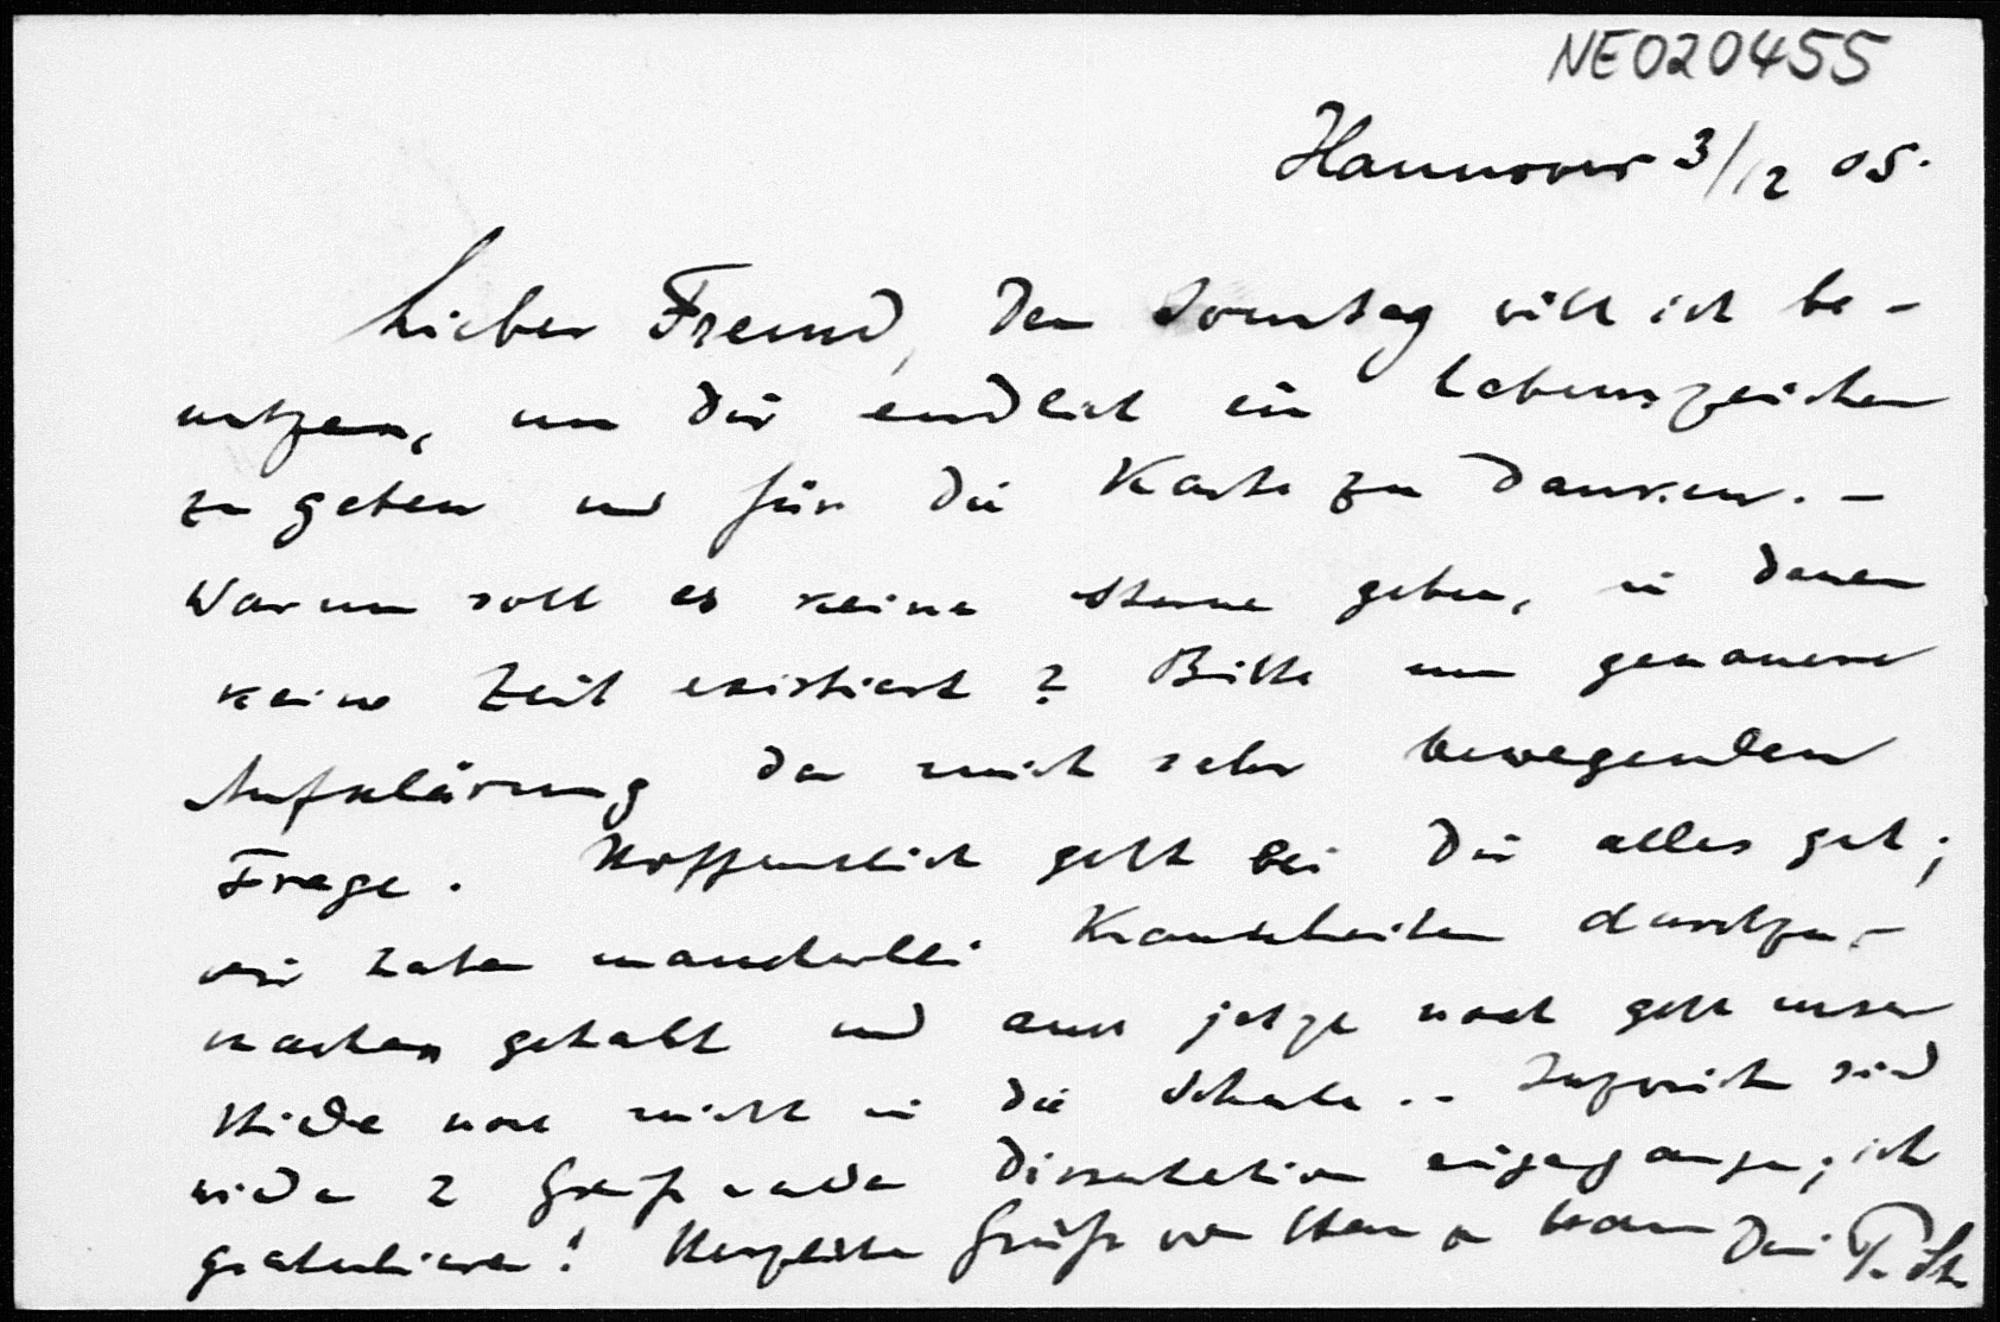 NE020455
Hannover 3/12 05.
Lieber Freund, Den Sonntag will ich be-
nutzen, um Dir endlich ein Lebenszeichen
zu geben und für die Karte zu danken. -
Warum soll es keine Sterne geben, in denen
keine Zeit existiert? Bitte um genauere
Aufklärung der mich sehr bewegenden
Frage. Hoffentlich geht bei Dir alles gut;
wir haben mancherlei Krankheiten durchzu-
machen gehabt und auch jetzt noch geht unser
noch nicht in die Schule.. Inzwischen sind
wieder 2 Dissertation eingegangen; ich
gratuliere! Herzliche Grüße von Haus zu Haus Dein P. St.